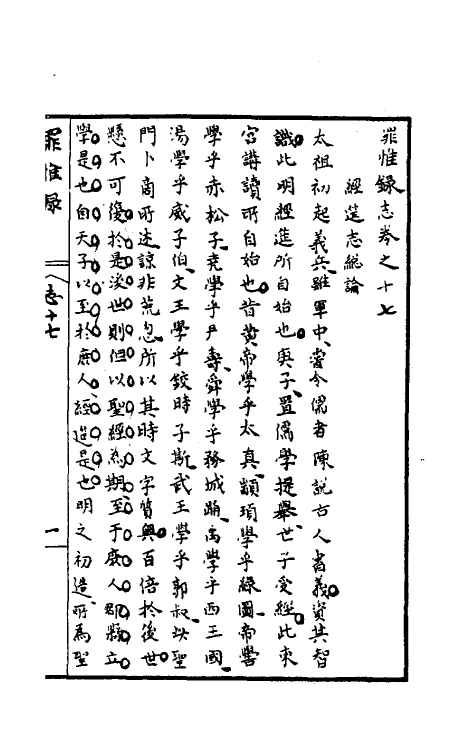 罪惟錄志卷之十七
經筵志總論
太祖初起義兵雖軍中嘗令儒者陳說古人書義資其智
識此明經筵所自始也庚子置儒學提舉世子受經此東
宮講讀所自始也昔黃帝學乎太真顓頊學乎綠圖帝嚳
學乎赤松子堯學乎尹壽舜學乎務成跗禹學乎西王國
湯學乎威子伯文王學乎鉸時子斯武王學乎郭叔以聖
門卜商所述諒非荒忽所以其時文字質與百倍於後世
懸不可復於是後世則但以聖經為期至于庶人郡縣立
學是也自天子以至於庶人經筵是也明之初造所為聖
罪惟錄
志十七
一